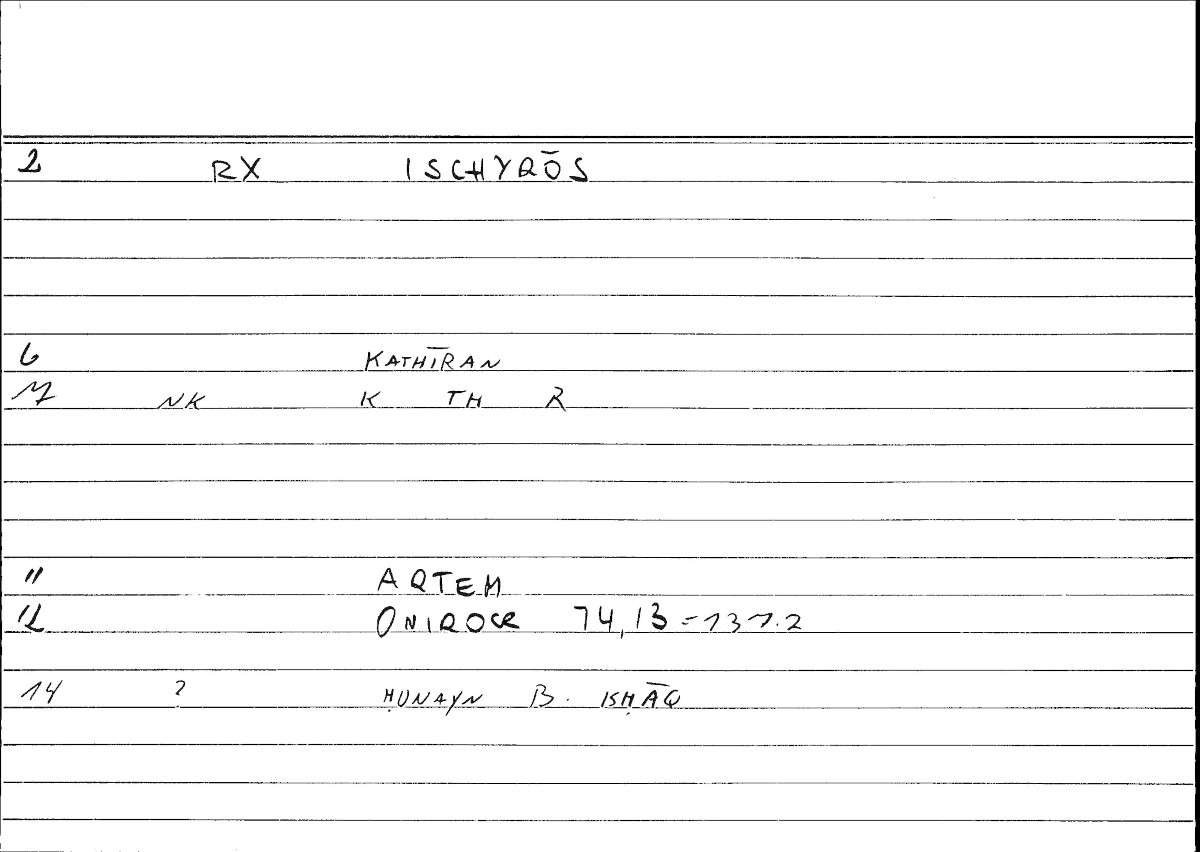 2 RX ISCHYRŌS
6 KATHĪRAN
7 NK K TH R
11 ARTEM
12 ONIROCR 74,13 = 137.2
14 ? ḤUNAYN B. ISḤĀQ